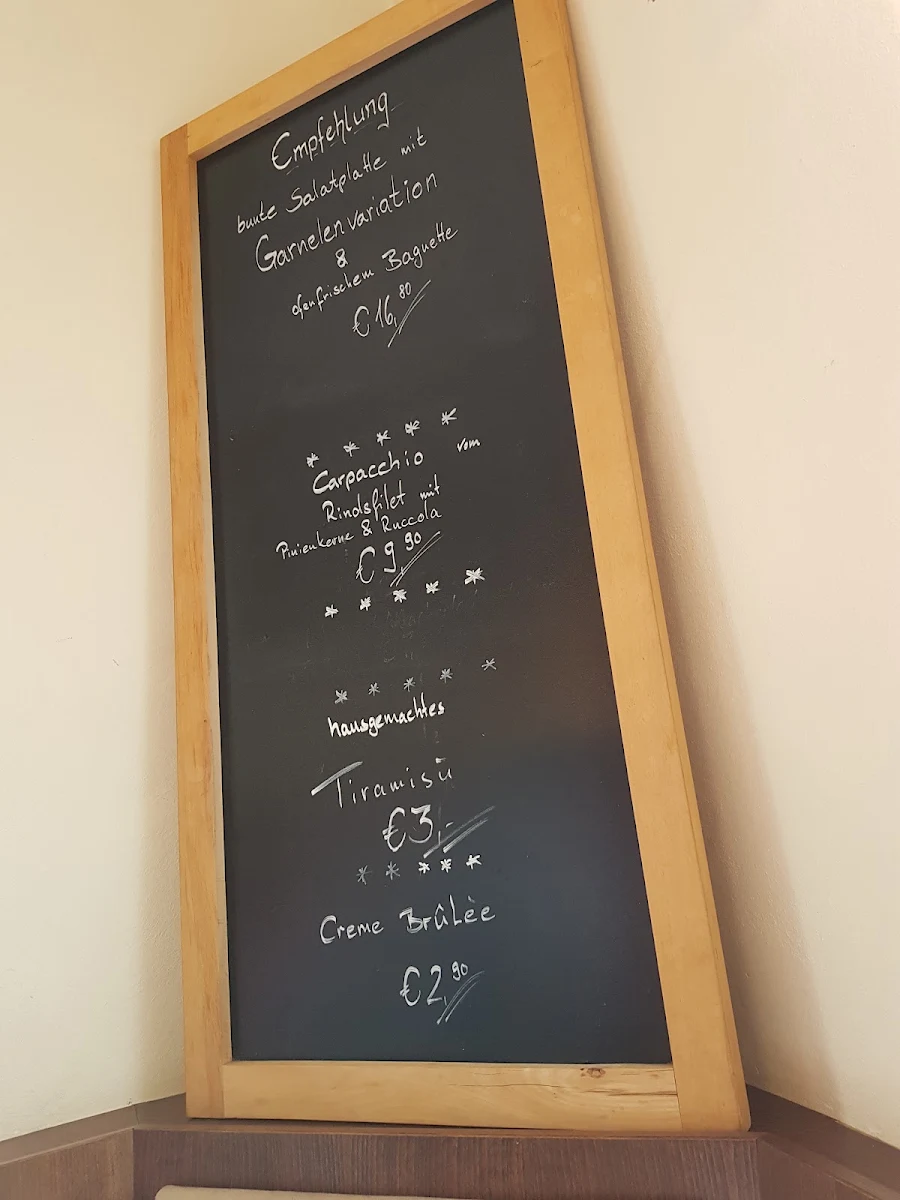 Empfehlung
bunte Salatplatte mit
Garnelenvariation
&
ofenfrischem Baguette
€ 16,80
* * * * *
Carpacchio vom
Rindsfilet mit
Pinienkerne & Ruccola
€ 9,90
* * * * *
* * * * *
hausgemachtes
Tiramisù
€3,-
* * * * *
Creme Brûlèe
€2,90